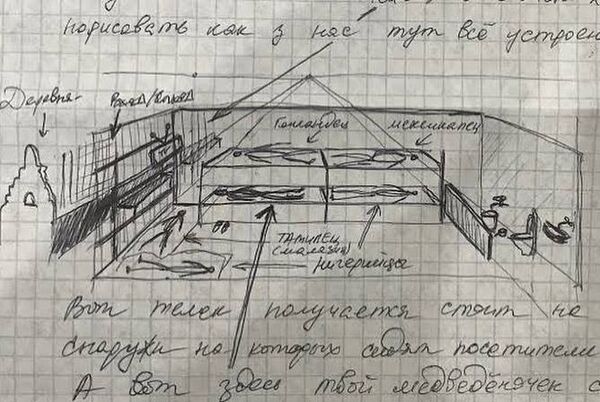 нарисовать как у нас тут всё устроен
Деревня
Вход/выход
Голландец
мексиканец
ТАМИЛЕЦ
(МАЛАЗИЯ)
нигерийцы
Вот телек получается стоит на
снаружи на которых сидят посетители
А вот здесь твой медвежоночек с